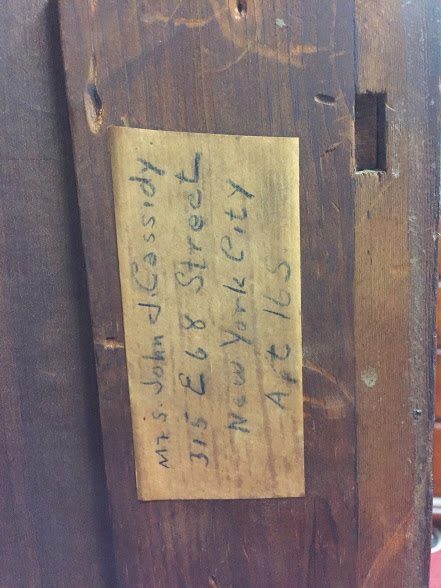 Mrs. John J Cassidy
315 E 68 Street
New York City
Apt 16S